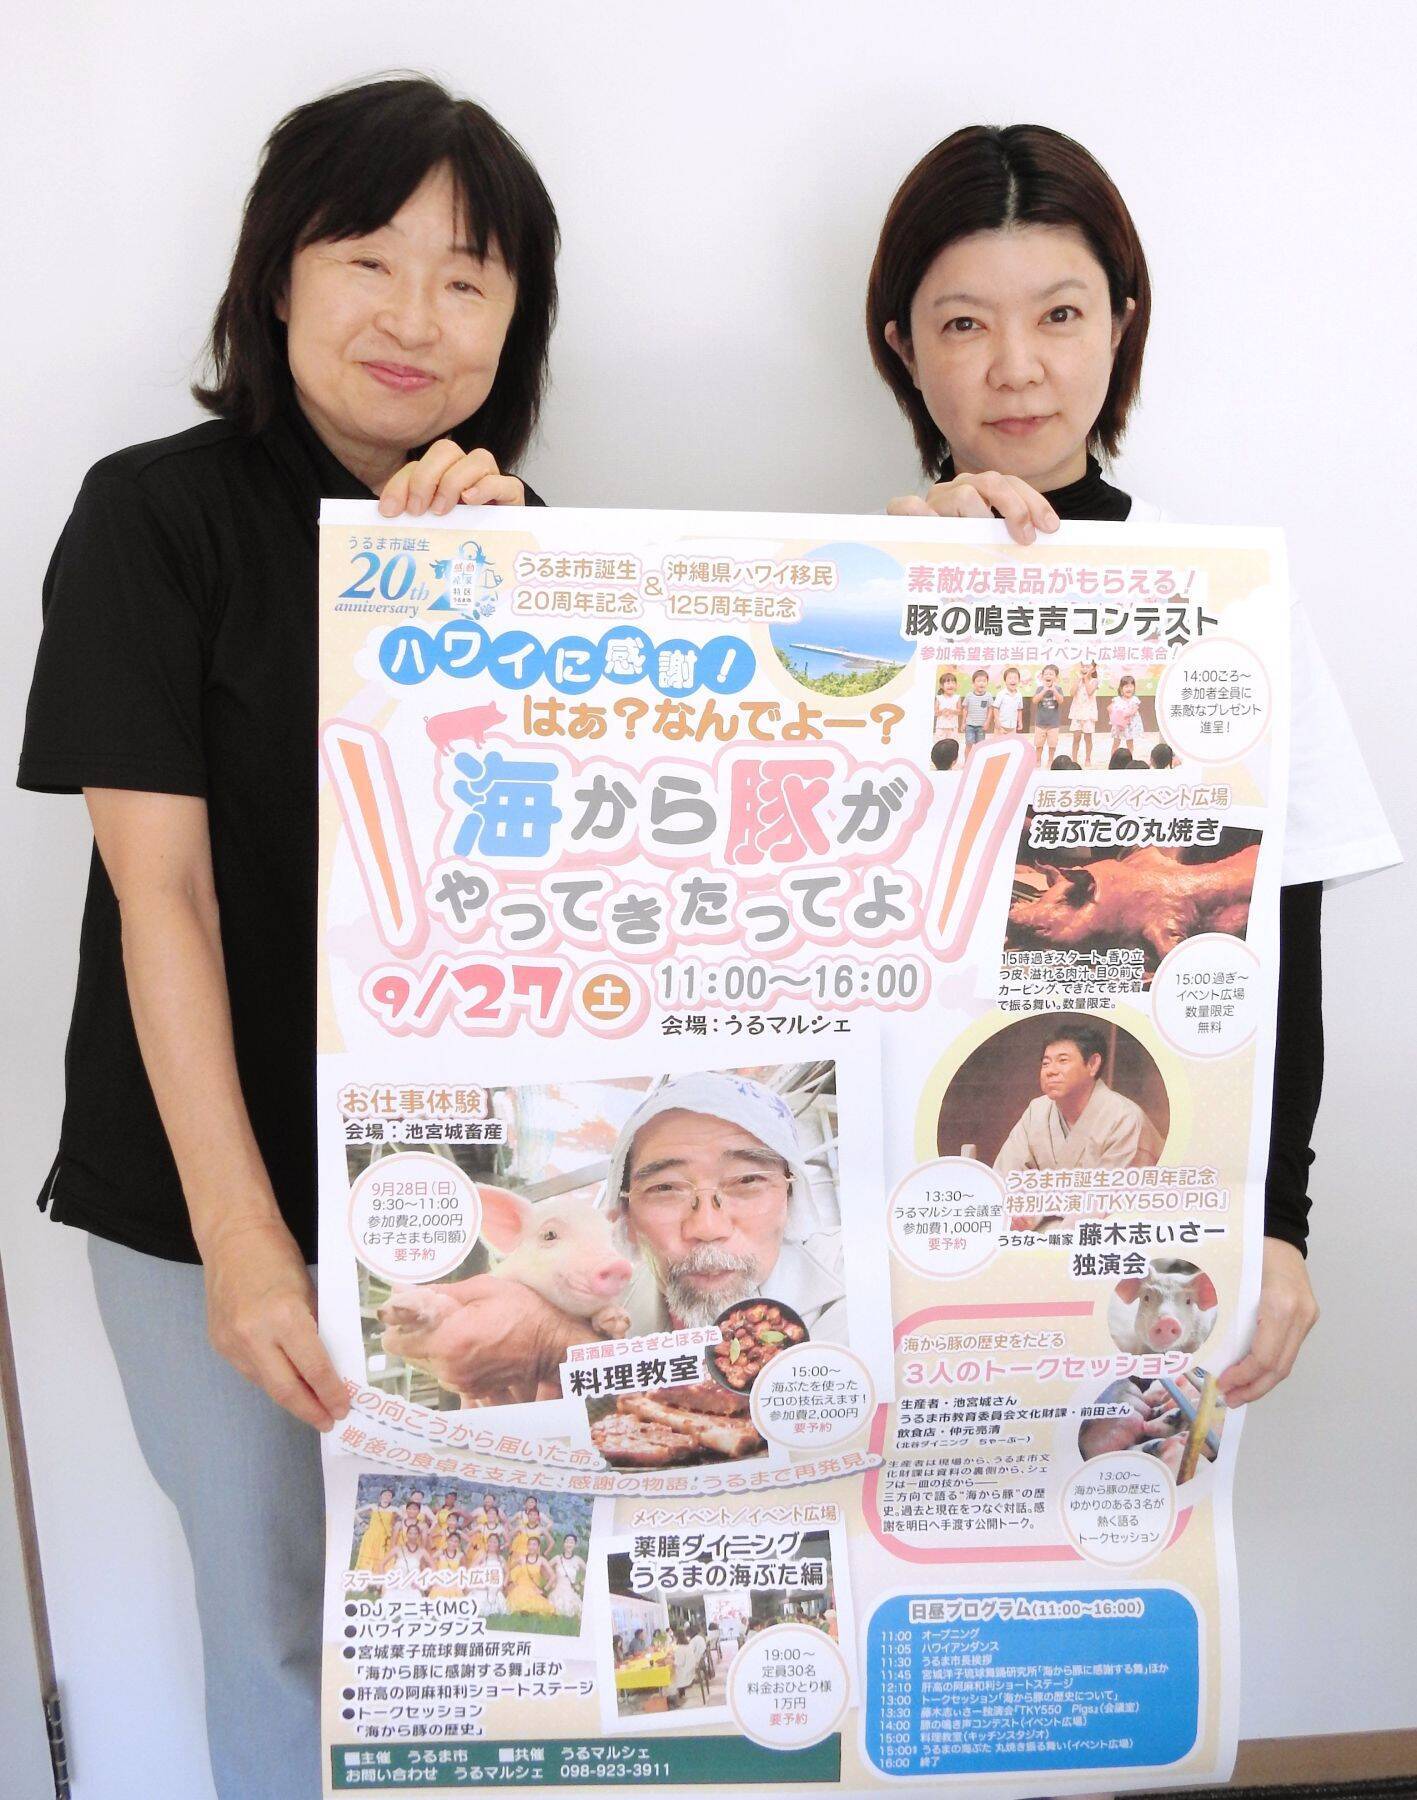 うるま市誕生
20th
anniversary
感動
産業
特区
うるま市
うるま市誕生
20周年記念
&
沖縄県ハワイ移民
125周年記念
ハワイに感謝!
はぁ?なんでよー?
海から豚が
やってきたってよ
9/27 土 11:00〜16:00
会場:うるマルシェ
素敵な景品がもらえる!
豚の鳴き声コンテスト
参加希望者は当日イベント広場に集合!
14:00ごろ〜
参加者全員に
素敵なプレゼント
進呈!
振る舞い/イベント広場
海ぶたの丸焼き
15時過ぎスタート。香り立
つ皮、溢れる肉汁。目の前で
カービング、できたてを先着
で振る舞い。数量限定。
15:00過ぎ〜
イベント広場
数量限定
無料
うるま市誕生20周年記念
特別公演『TKY550 PIG』
うちな〜噺家 藤木志ぃさー
独演会
13:30〜
うるマルシェ会議室
参加費1,000円
要予約
お仕事体験
会場:池宮城畜産
9月28日(日)
9:30〜11:00
参加費2,000円
(お子さまも同額)
要予約
居酒屋うさぎとぽるた
料理教室
15:00〜
海ぶたを使った
プロの技伝えます!
参加費2,000円
要予約
海の向こうから届いた命。
戦後の食卓を支えた、感謝の物語。うるまで再発見。
海から豚の歴史をたどる
3人のトークセッション
生産者・池宮城さん
うるま市教育委員会文化財課・前田さん
飲食店・仲元亮清
(北谷ダイニング ちゃーぶー)
生産者は現場から、うるま市文
化財課は資料の裏側から、シェ
フは一皿の技から——
三方向で語る“海から豚”の歴
史。過去と現在をつなぐ対話。感
謝を明日へ手渡す公開トーク。
13:00〜
海から豚の歴史に
ゆかりのある3名が
熱く語る
トークセッション
ステージ/イベント広場
●DJ アニキ(MC)
●ハワイアンダンス
●宮城葉子琉球舞踊研究所
「海から豚に感謝する舞」ほか
●肝高の阿麻和利ショートステージ
●トークセッション
「海から豚の歴史」
メインイベント/イベント広場
薬膳ダイニング
うるまの海ぶた編
19:00〜
定員30名
料金おひとり様
1万円
要予約
日昼プログラム(11:00〜16:00)
11:00 オープニング
11:05 ハワイアンダンス
11:30 うるま市長挨拶
11:45 宮城洋子琉球舞踊研究所「海から豚に感謝する舞」ほか
12:10 肝高の阿麻和利ショートステージ
13:00 トークセッション「海から豚の歴史について」
13:30 藤木志ぃさー独演会『TKY550 Pigs』(会議室)
14:00 豚の鳴き声コンテスト(イベント広場)
15:00 料理教室(キッチンスタジオ)
15:00 うるまの海ぶた 丸焼き振る舞い(イベント広場)
16:00 終了
■主催 うるま市 ■共催 うるマルシェ
お問い合わせ うるマルシェ 098-923-3911